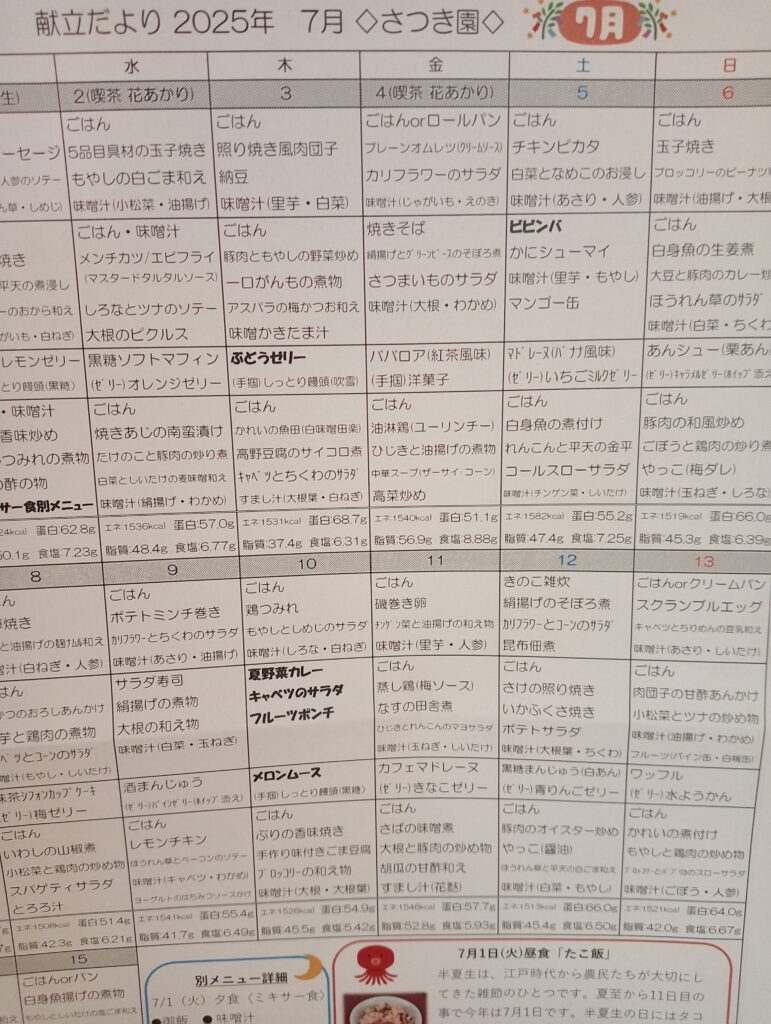 献立だより 2025年 7月 ◇さつき園◇
7月
水
木
金
土
日
2(喫茶 花あかり)
ごはん
5品目具材の玉子焼き
もやしの白ごま和え
味噌汁(小松菜・油揚げ)
ごはん・味噌汁
メンチカツ/エビフライ
(マスタードタルタルソース)
しろなとツナのソテー
大根のピクルス
黒糖ソフトマフィン
(ゼリー)オレンジゼリー
ごはん
焼きあじの南蛮漬け
たけのこと豚肉の炒り煮
白菜としいたけの麦味噌和え
味噌汁(絹揚げ・わかめ)
エネ:1536kcal 蛋白:57.0g
脂質:48.4g 食塩:6.77g
3
ごはん
照り焼き風肉団子
納豆
味噌汁(里芋・白菜)
ごはん
豚肉ともやしの野菜炒め
一口がんもの煮物
アスパラの梅かつお和え
味噌かきたま汁
ぶどうゼリー
(手掴)しっとり饅頭(吹雪)
ごはん
かれいの魚田(白味噌田楽)
高野豆腐のサイコロ煮
キャベツとちくわのサラダ
すまし汁(大根葉・白ねぎ)
エネ:1531kcal 蛋白:68.7g
脂質:37.4g 食塩:6.31g
4(喫茶 花あかり)
ごはんorロールパン
プレーンオムレツ(クリームソース)
カリフラワーのサラダ
味噌汁(じゃがいも・えのき)
焼きそば
絹揚げとグリーンピースのそぼろ煮
さつまいものサラダ
味噌汁(大根・わかめ)
ババロア(紅茶風味)
(手掴)洋菓子
ごはん
油淋鶏(ユーリンチー)
ひじきと油揚げの煮物
中華スープ(ザーサイ・コーン)
高菜炒め
エネ:1540kcal 蛋白:51.1g
脂質:56.9g 食塩:8.88g
5
ごはん
チキンピカタ
白菜となめこのお浸し
味噌汁(あさり・人参)
ビビンバ
かにシューマイ
味噌汁(里芋・もやし)
マンゴー缶
マドレーヌ(バナナ風味)
(ゼリー)いちごミルクゼリー
ごはん
白身魚の煮付け
れんこんと平天の金平
コールスローサラダ
味噌汁(チンゲン菜・しいたけ)
エネ:1582kcal 蛋白:55.2g
脂質:47.4g 食塩:7.25g
6
ごはん
玉子焼き
ブロッコリーのピーナツ
味噌汁(油揚げ・大根
ごはん
白身魚の生姜煮
大豆と豚肉のカレー炒
ほうれん草のサラダ
味噌汁(白菜・ちくわ
あんシュー(栗あん)
(ゼリー)キャラメルゼリー(ホイップ添え
ごはん
豚肉の和風炒め
ごぼうと鶏肉の炒り煮
やっこ(梅ダレ)
味噌汁(玉ねぎ・しろな
エネ:1519kcal 蛋白:66.0g
脂質:45.3g 食塩:6.39g
8
9
ごはん
ポテトミンチ巻き
カリフラワーとちくわのサラダ
味噌汁(あさり・油揚げ)
サラダ寿司
絹揚げの煮物
大根の和え物
味噌汁(白菜・玉ねぎ)
酒まんじゅう
(ゼリー)パインゼリー(ホイップ添え)
ごはん
レモンチキン
ほうれん草とベーコンのソテー
味噌汁(キャベツ・わかめ)
ヨーグルトのはちみつソースかけ
エネ:1541kcal 蛋白:55.4g
脂質:41.7g 食塩:6.49g
10
ごはん
鶏つみれ
もやしとしめじのサラダ
味噌汁(しろな・白ねぎ)
夏野菜カレー
キャベツのサラダ
フルーツポンチ
メロンムース
(手掴)しっとり饅頭(黒糖)
ごはん
ぶりの香味焼き
手作り味付きごま豆腐
ブロッコリーの和え物
味噌汁(大根・大根葉)
エネ:1526kcal 蛋白:54.9g
脂質:45.5g 食塩:5.42g
11
ごはん
磯巻き卵
チンゲン菜と油揚げの和え物
味噌汁(里芋・人参)
ごはん
蒸し鶏(梅ソース)
なすの田舎煮
ひじきとれんこんのマヨサラダ
味噌汁(玉ねぎ・しいたけ)
カフェマドレーヌ
(ゼリー)きなこゼリー
ごはん
さばの味噌煮
大根と豚肉の炒め物
胡瓜の甘酢和え
すまし汁(花麩)
エネ:1546kcal 蛋白:57.7g
脂質:52.8g 食塩:5.93g
12
きのこ雑炊
絹揚げのそぼろ煮
カリフラワーとコーンのサラダ
昆布佃煮
ごはん
さけの照り焼き
いかふくさ焼き
ポテトサラダ
味噌汁(大根葉・ちくわ)
黒糖まんじゅう(白あん)
(ゼリー)青りんごゼリー
ごはん
豚肉のオイスター炒め
やっこ(醤油)
ほうれん草と平天の白ごま和え
味噌汁(白菜・もやし)
エネ:1513kcal 蛋白:66.0g
脂質:45.4g 食塩:6.50g
13
ごはんorクリームパン
スクランブルエッグ
キャベツとちりめんの豆乳和え
味噌汁(あさり・しいたけ)
ごはん
肉団子の甘酢あんかけ
小松菜とツナの炒め物
味噌汁(油揚げ・わかめ)
フルーツ(パイン缶・白桃缶)
ワッフル
(ゼリー)水ようかん
ごはん
かれいの煮付け
もやしと鶏肉の炒め物
ブロッコリーとパプリカのスローサラダ
味噌汁(ごぼう・人参)
エネ:1521kcal 蛋白:64.0g
脂質:42.0g 食塩:6.67g
ごはん
いわしの山椒煮
小松菜と鶏肉の炒め物
スパゲティサラダ
とろろ汁
エネ:1508kcal 蛋白:51.4g
脂質:42.3g 食塩:6.21g
15
ごはんorパン
白身魚揚げの煮物
もやしとしいたけの塩ごま和え
別メニュー詳細
7/1 (火) 夕食〈ミキサー食〉
●御飯 ●味噌汁
7月1日(火)昼食「たこ飯」
半夏生は、江戸時代から農民たちが大切にし
てきた雑節のひとつです。夏至から11日目の
事で今年は7月1日です。半夏生の日にはタコ